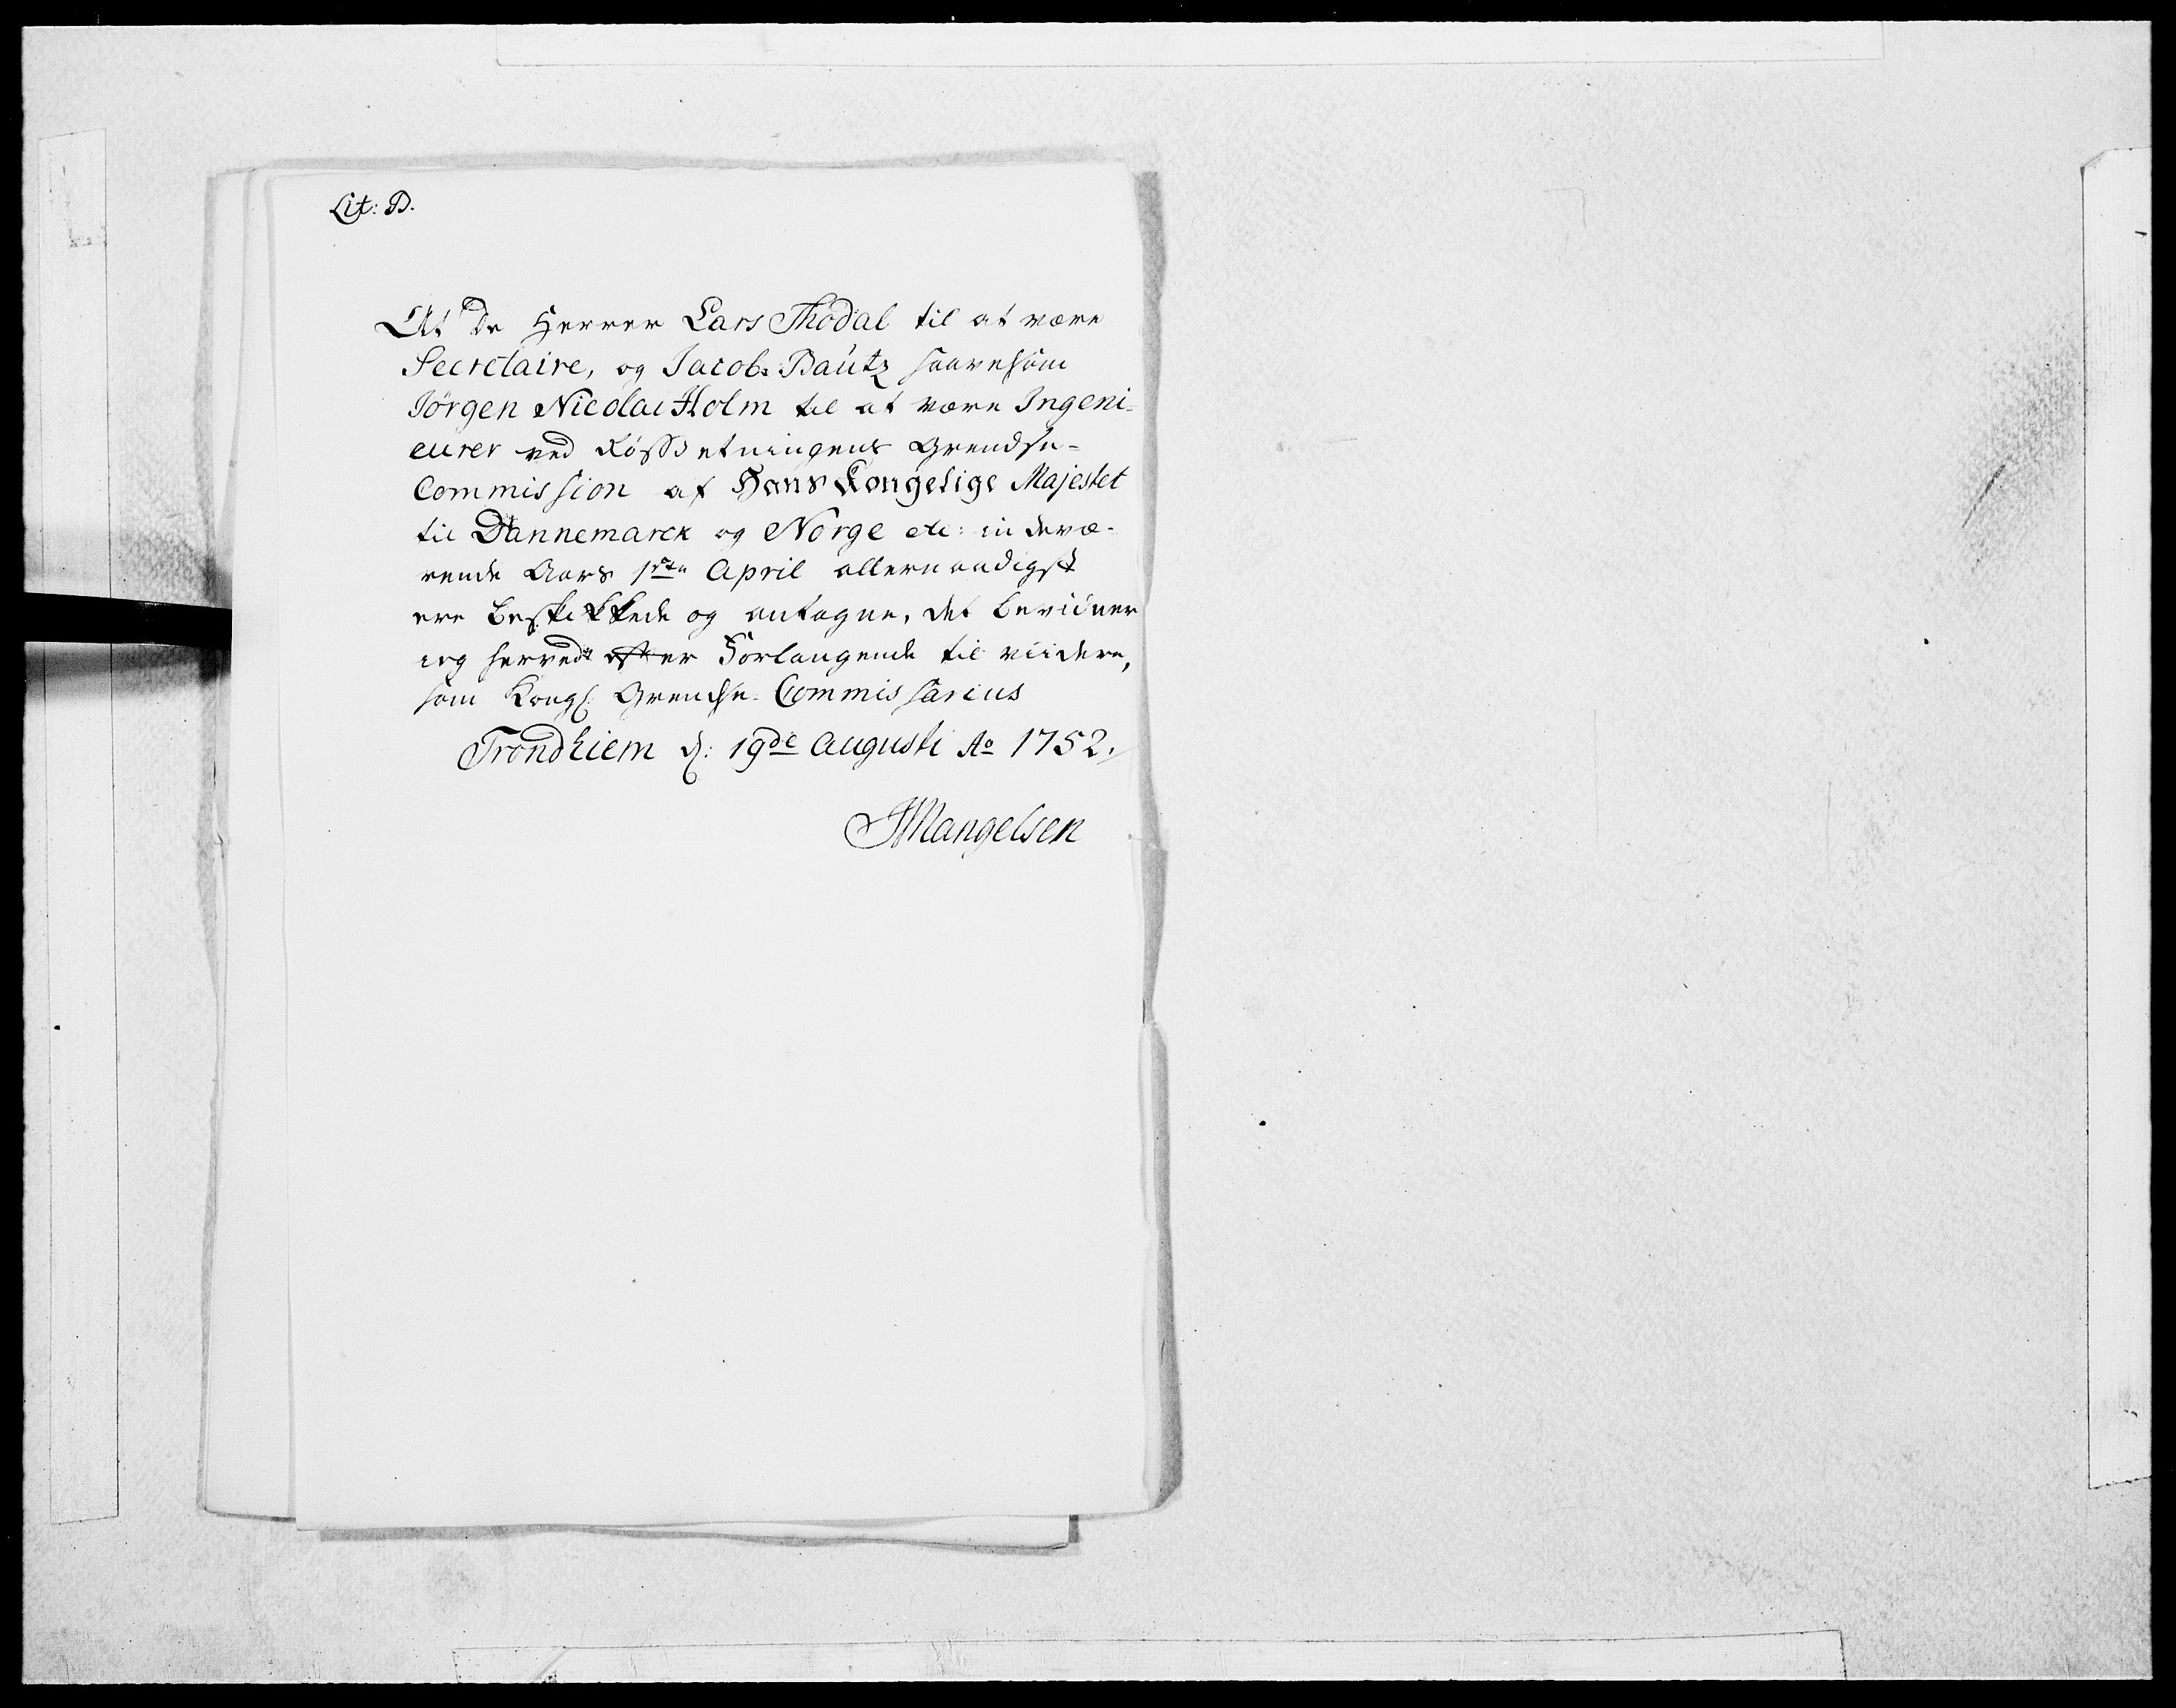 Lit: D.
At De Herrer Lars Thodal til at være
Secretaire, og Jacob Bautz saavelsom
Jörgen Nicolai Holm til at være Ingeni-
eurer ved Røssetningens Grendse-
Commission af Hans Kongelige Majestet
til Dannemarck og Norge etc: indevæ-
rende Aars 1ste April allernaadigst
ere beskikkede og antagne, det bevidner
ieg herved efter Forlangende til viidere,
som Kongl: Grendse-Commissarius
Trondhiem d: 19de Augusti Ao 1752.
Mangelsen